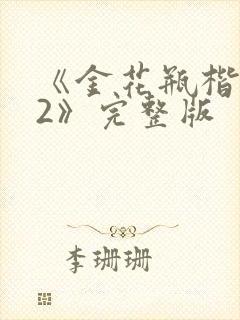 《金花瓶楷
2》完整版
李珊珊